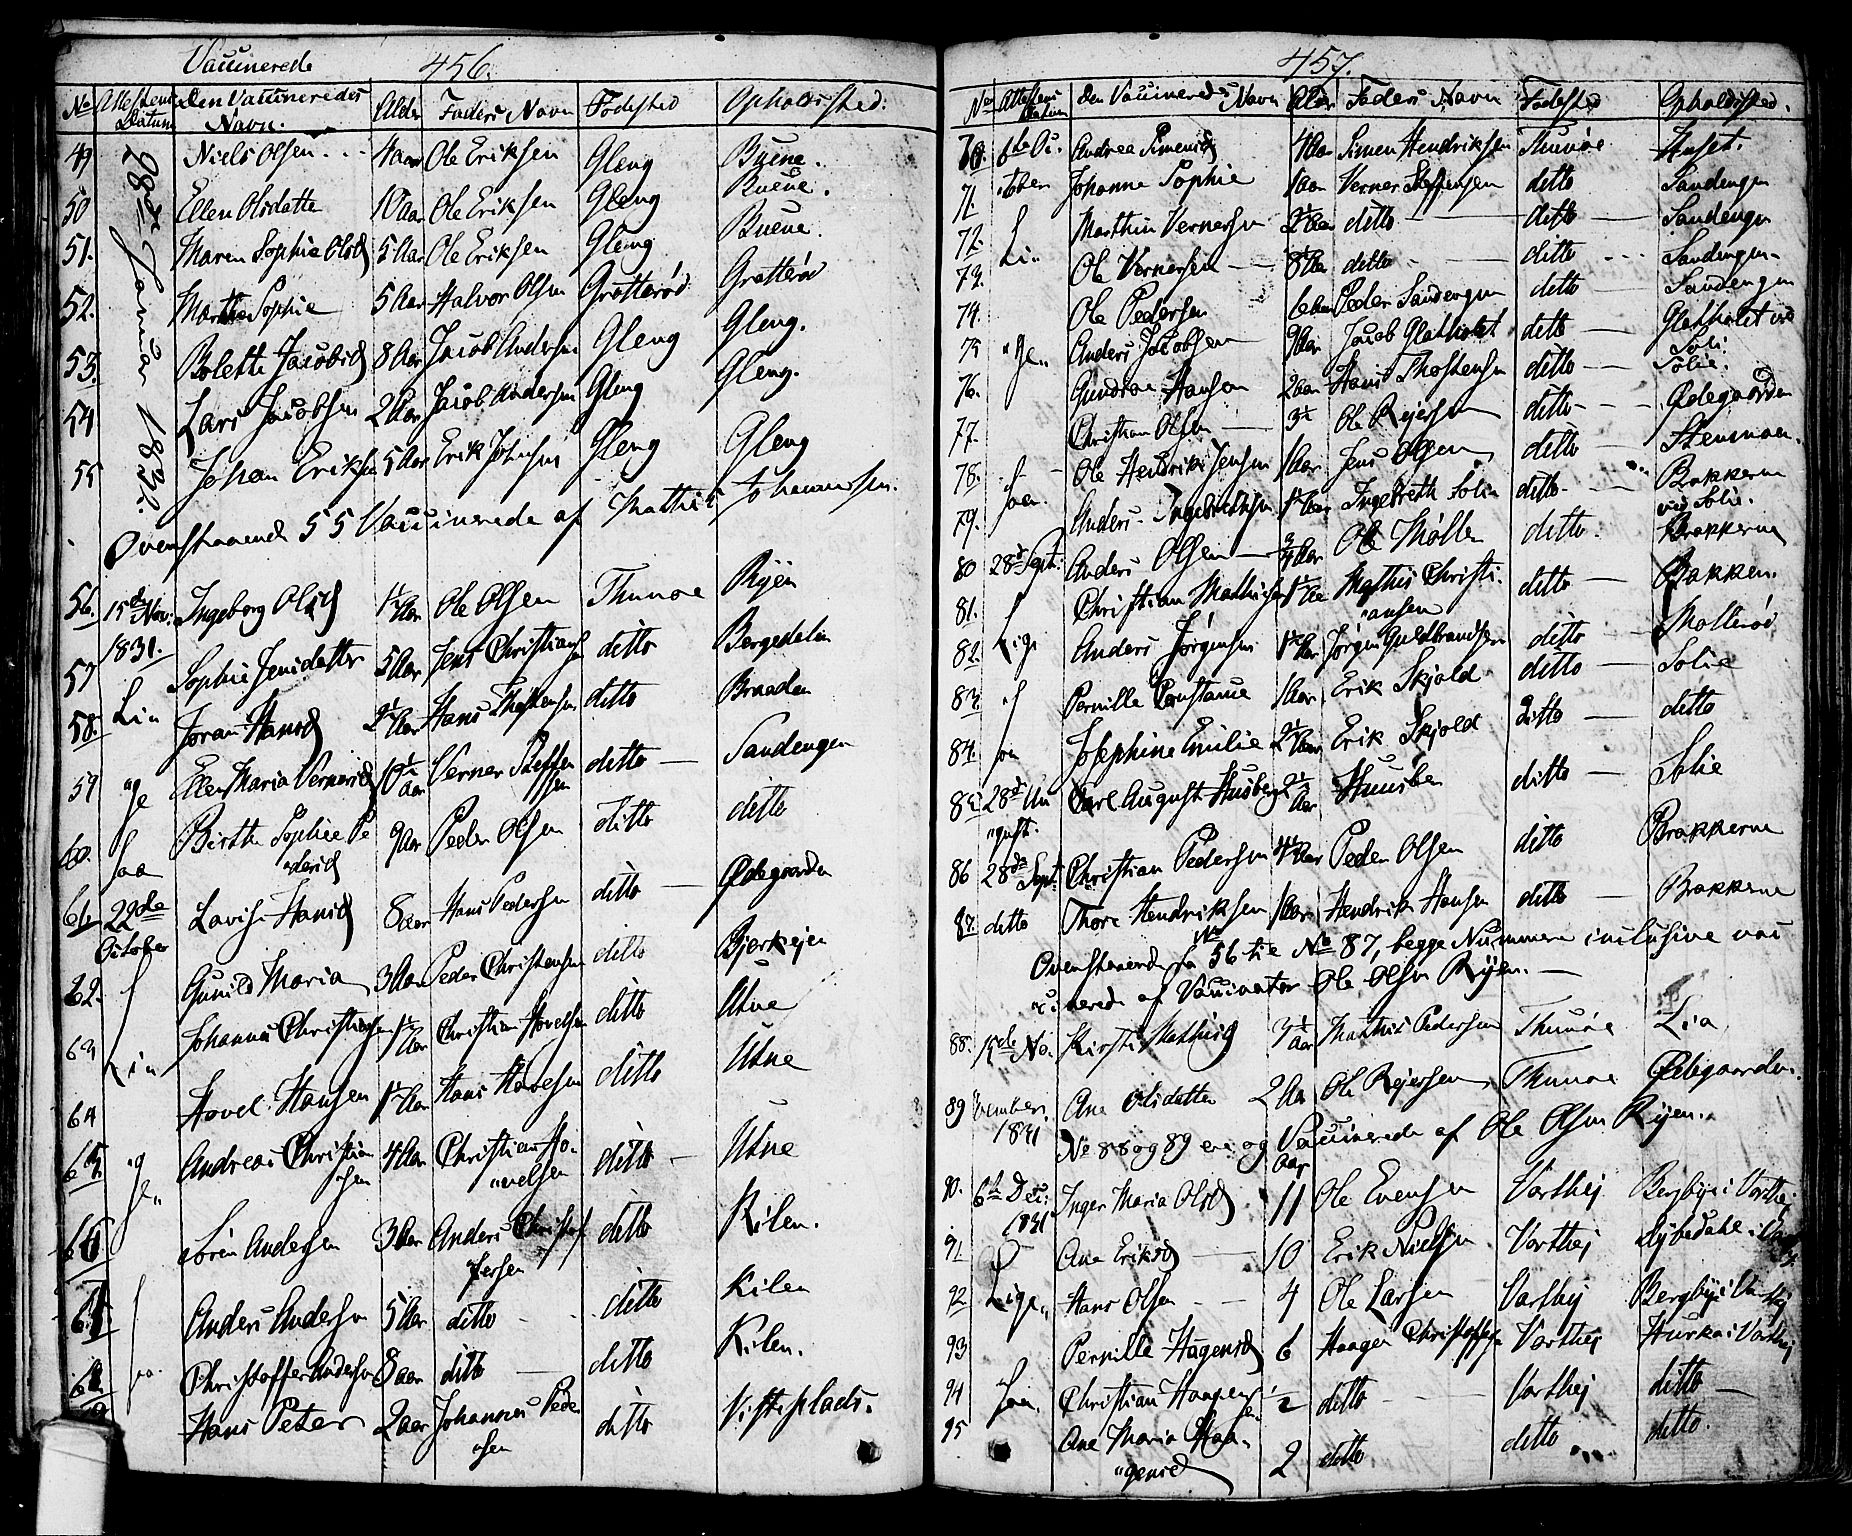 Vaccinerede 456.
No Attestens Datum Den Vaccineredes Navn. Alder Faders Navn Fødested Opholdssted:
28de Januar 1832.
49 Niels Olsen 4 aar Ole Eriksen Gleng Buene.
50 Ellen Olsdatter 10 aar Ole Eriksen Gleng Buene.
51. Maren Sophie Olsd 5 Aar Ole Eriksen Gleng Buene.
52. Marthe Sophie 5 Aar Halvor Olsen Grøtterød Grøtterød
53. Bolette Jacobsd 8 Aar Jacob Andersen Gleng Gleng.
54 Lars Jacobsen 2 Aar Jacob Andersen Gleng Gleng.
55 Johan Eriksen 5 Aar Erik Johnsen Gleng Gleng
Ovenstaaende 55 Vaccinerede af Mathis Johannesen.
56. 15de Nov: Ingeborg Olsd 1½ Aar Ole Olsen Thunøe Ryen
1831.
57 Sophie Jensdatter 5 Aar Jens Christiansen ditto Bergedalen
58. Lii Joran Hansd 2½ Aar Hans Thostensen ditto Braaden
59 "ge Ellen Maria Vernersd 10½ aar Verner Steffensen ditto — Sandengen
60. saa Birthe Sophie Pe 9 Aar Peder Olsen ditto ditto
"dersd
61 22de Lovise Hansd 8 aar Hans Pedersen ditto — Ødegaarden
October
62. Gunild Maria 3 Aar Peder Christensen ditto Bjerkejen
63 Lii Johannes Christiansen 1½ Aar Christian Hovelsen ditto Utne
64 Hovel Hansen 1½ Aar Hans Hovelsen ditto Utne
65 "ge" Andreas Christian 4 Aar Christian Ho ditto — Utne
"sen "velsen
66 Søren Andersen 3 Aar Anders Christof ditto Kilen.
fersen
67 Anders Andersen 5 Aar ditto ditto Kilen
68 saa Christoffer Andersen 8 aar ditto ditto Kilen.
Hans Peter 2 aar Johannes Pede ditto Visteplads.
rsen
457.
No Attestens Datum Den Vaccineredes Navn Alder Faders Navn Fødested Opholdssted.
70. 6te Oc Andrea Simensd 4 Aar Simen Hendriksen Thunøe Huset.
71. "tober Johanne Sophie 1 Aar Verner Steffensen ditto Sandengen
72. Marthin Vernersen 2½ Aar ditto — ditto — Sandengen
73. Li" Ole Vernersen — 8½ Aar ditto — ditto Sandengen
74. Ole Pedersen 6 Aar Peder Sandengen ditto — Sandengen
75 "ge" Anders Jacobsen 9 Aar Jacob Glatholet ditto — Glatholet ved
Solie.
76. Gundroe Hansen 2 aar Hans Thostensen ditto — Solie.
77. Christian Olsen — 3½ Ole Rejersen ditto — Ødegaarden
78. Ole Hendrik Jensen 1 Aar Jens Olsen ditto — Stenmoen.
79. saa. Anders Ingebrethsen 1½ Aar Ingebreth Solie ditto — Bakkerne
ved Solie.
80 28de Sept: Anders Olsen — ¾ Aar Ole Møller ditto. Brakkerne
81. Christian Mathisen 1½ Aar Mathis Christi ditto — Bakken.
"ansen
82. Lige Anders Jørgensen 1½ Aar Jørgen Guldbrandsen ditto — Møllerød
83. Pernille Constance 1 Aar. Erik Skjold ditto — Solie
84. saa Josephine Emilie 2½ Aar Erik Skjold ditto — ditto
85 28de Au Carl August Husberg 2½ Aar ditto — Solie
"gust.
86 28de Sept: Christian Pedersen 4½ Aar Peder Olsen ditto Brakkerne
87. ditto Thore Hendriksen 1 Aar Hendrik Hansen ditto — Brakkerne
Ovenstaaende fra No 56 til No 87, begge Nummere inclusive vac
"cinerede af Vaccinatør Ole Olsen Ryen. —
88. 15de No. Kirsti Mathisd 3½ Aar Mathis Pedersen Thunøe Lia
89 "vember Ane Olsdatter 2 Aar Ole Rejersen Thunøe Ødegaarden.
1831 No 88 og 89 ere og Vaccinerede af Ole Olsen Ryen.
Aar
90. 6te Dec: Inger Maria Olsd 11 Ole Evensen Varthej Bergbye i Varthej
1831
91. Ane Eriksd — 10 Erik Nielsen Varthej
92 Lige" Hans Olsen 4 Ole Larsen Varthej Bergbye i Varthej
93 Pernille Hagensd 6 Haagen Christoffersen Varthej Hurka i Varthej
94 saa. Christian Haagensen 2 ditto Varthej ditto —
95 Ane Maria Haa 2 ditto ditto ditto.
"gensd